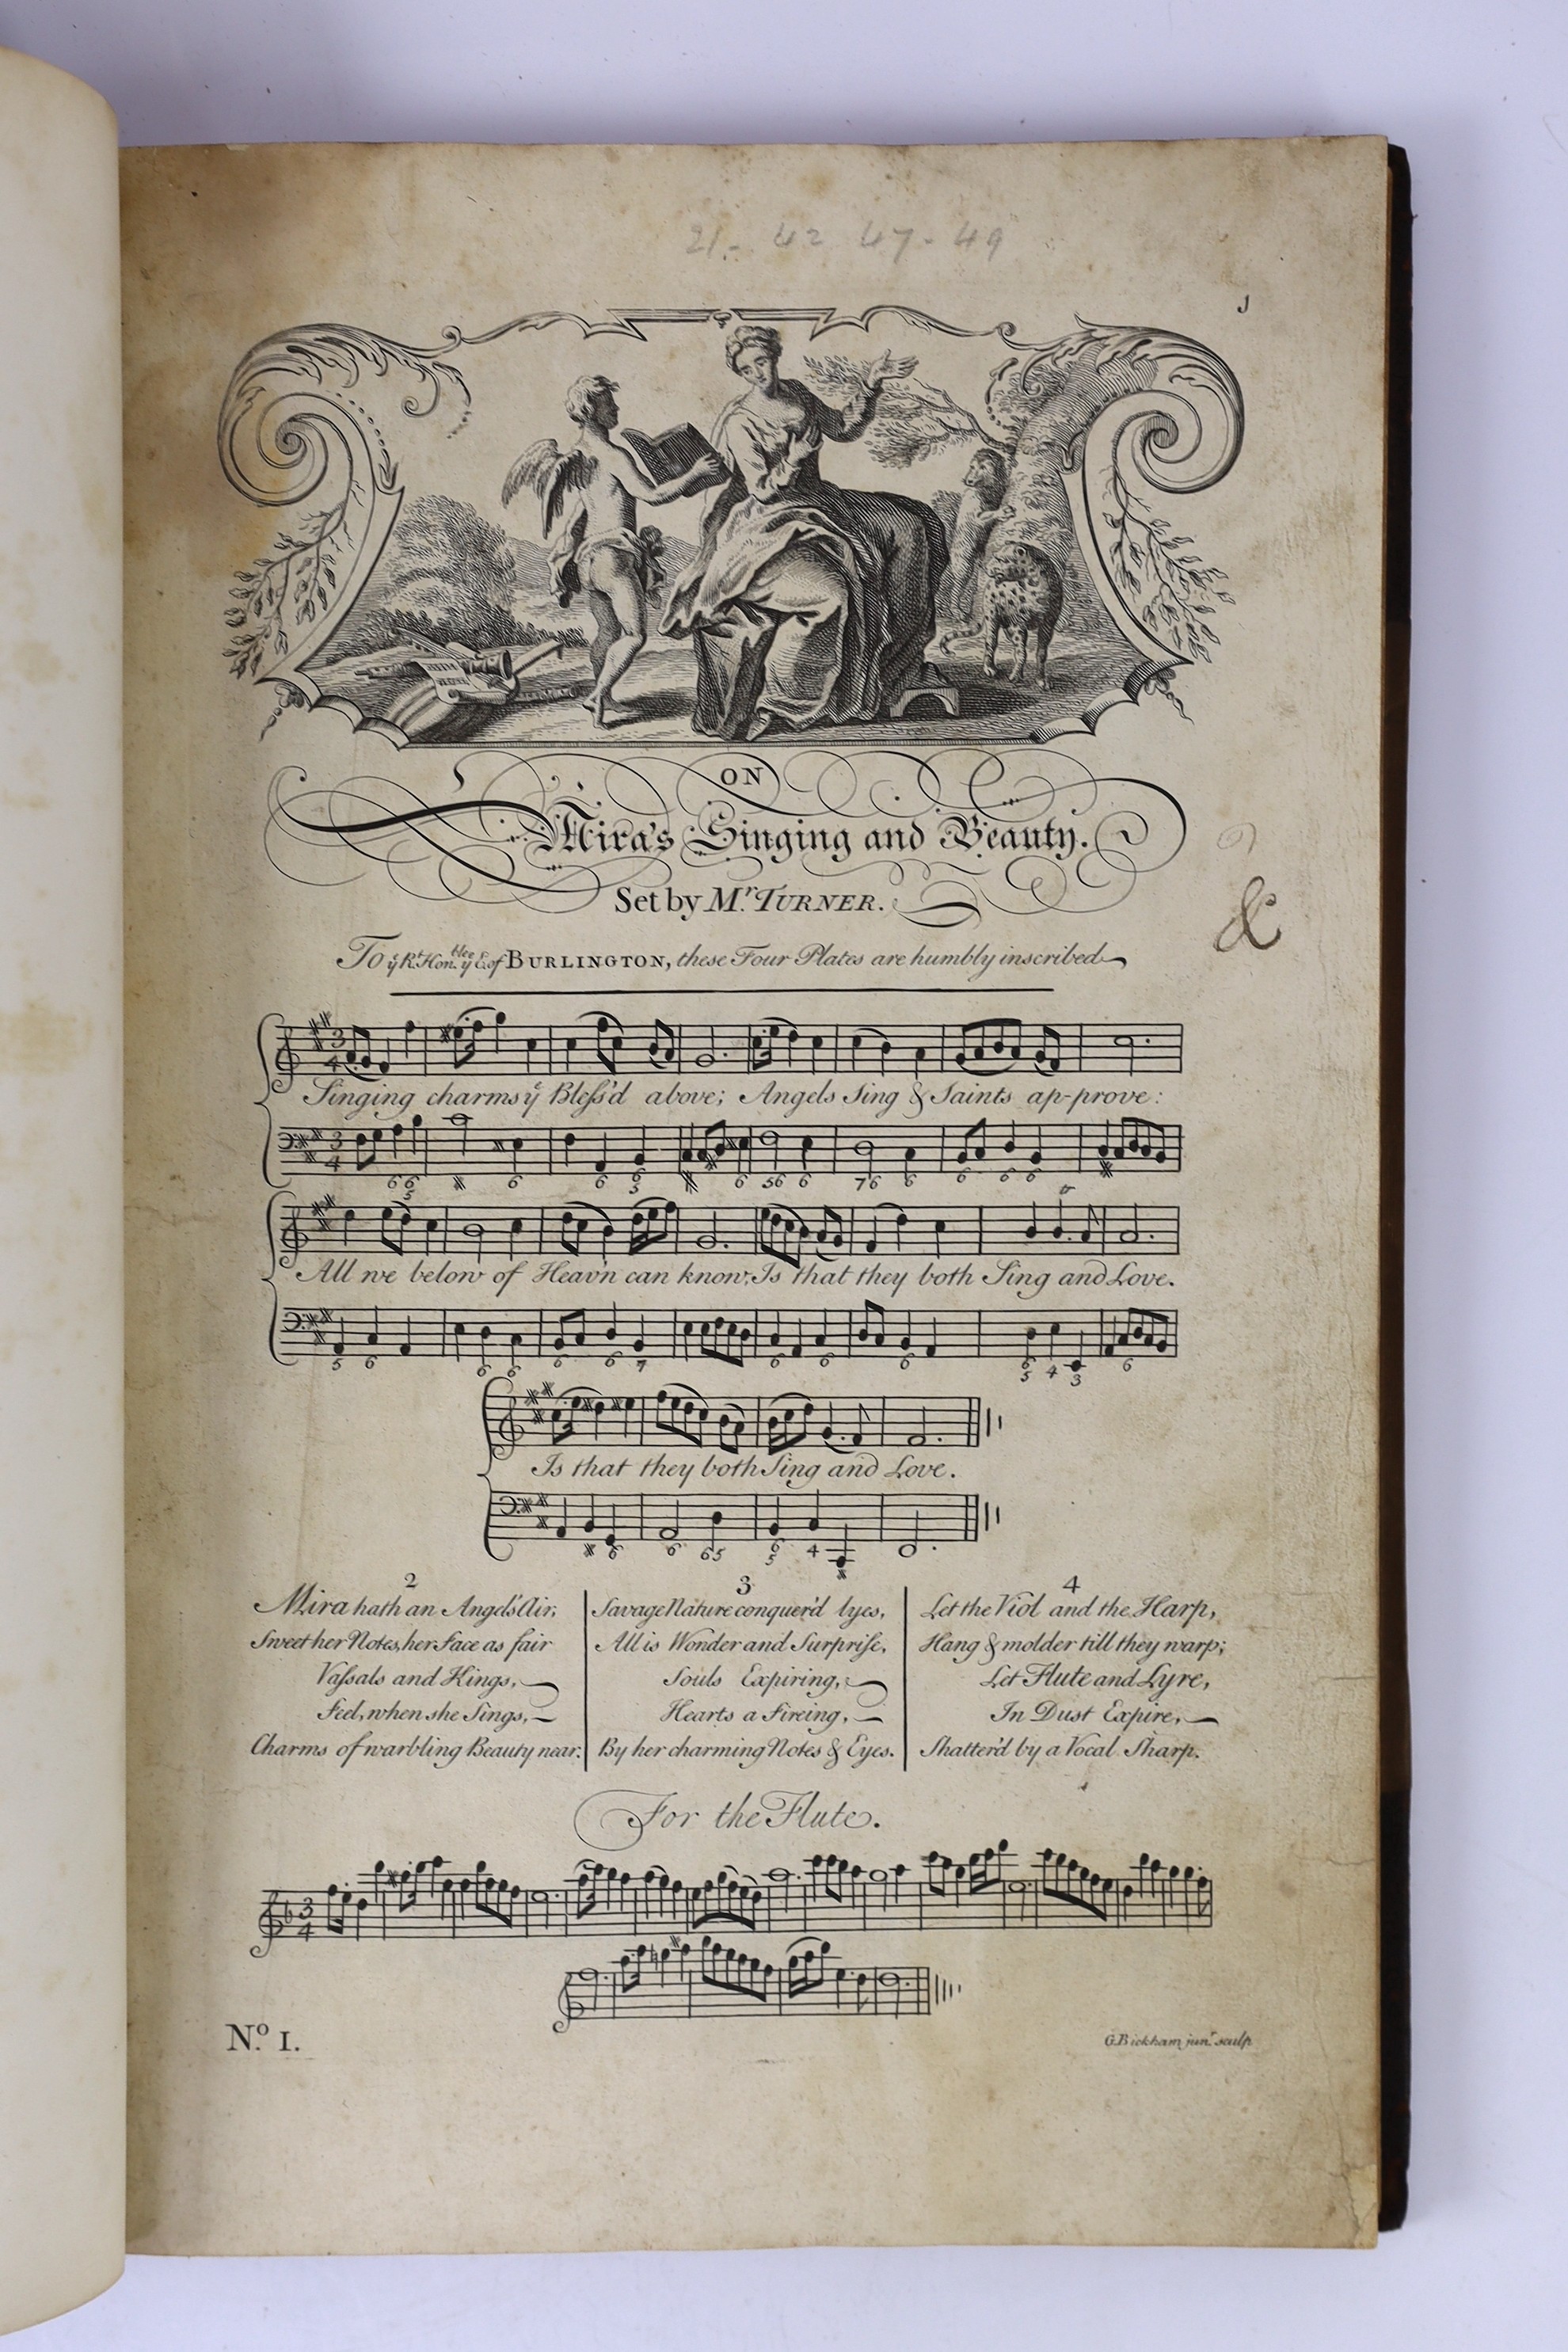 21. 42 47. 49
1
ON
Mira's Singing and Beauty.
Set by Mr. TURNER.
To ye Rt. Honble. ye E. of BURLINGTON, these Four Plates are humbly inscribed
3
4
Singing charms ye Bless'd above; Angels Sing & Saints ap-prove:
3
4
6 6 6 6 6 6 56 6 76 6 6 6 6
5 5
tr
All we below of Heav'n can know, Is that they both Sing and Love.
5 6 6 6 6 6 7 6 6 6 6 4 3 6
5
Is that they both Sing and Love.
6 6 65 6 4
5
2
Mira hath an Angels Air,
Sweet her Notes, her Face as fair
Vassals and Kings,
Feel, when she Sings,
Charms of warbling Beauty near.
3
Savage Nature conquer'd lyes,
All is Wonder and Surprise,
Souls Expiring,
Hearts a Fireing,
By her charming Notes & Eyes.
4
Let the Viol and the Harp,
Hang & molder till they warp;
Let Flute and Lyre,
In Dust Expire,
Shatter'd by a Vocal Sharp.
For the Flute.
3
4
No. 1.
G. Bickham junr. sculp